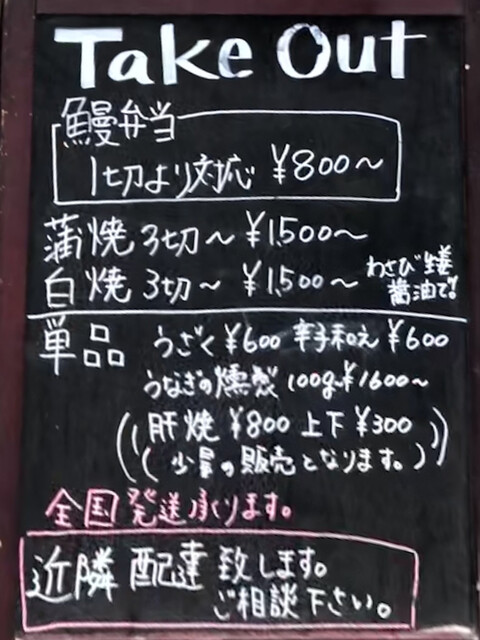 Take Out
鰻弁当
1切より対応 ¥800〜
蒲焼 3切〜 ¥1,500〜
白焼 3切〜 ¥1,500〜 わさび生姜
醤油で!
単品 うざく ¥600 辛子和え ¥600
うなぎの燻製 100g ¥1600〜
(肝焼 ¥800 上下 ¥300)
(少量の販売となります。)
全国発送承ります。
近隣 配達 致します。
ご相談下さい。